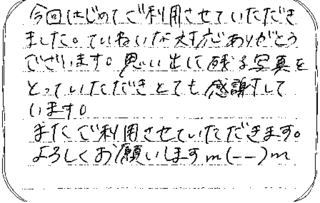 今回はじめてご利用させていただき
ました。ていねいな対応ありがとう
ございます。思い出に残る写真を
とっていただきとても感謝して
います。
またご利用させていただきます。
よろしくお願いしますm(--)m